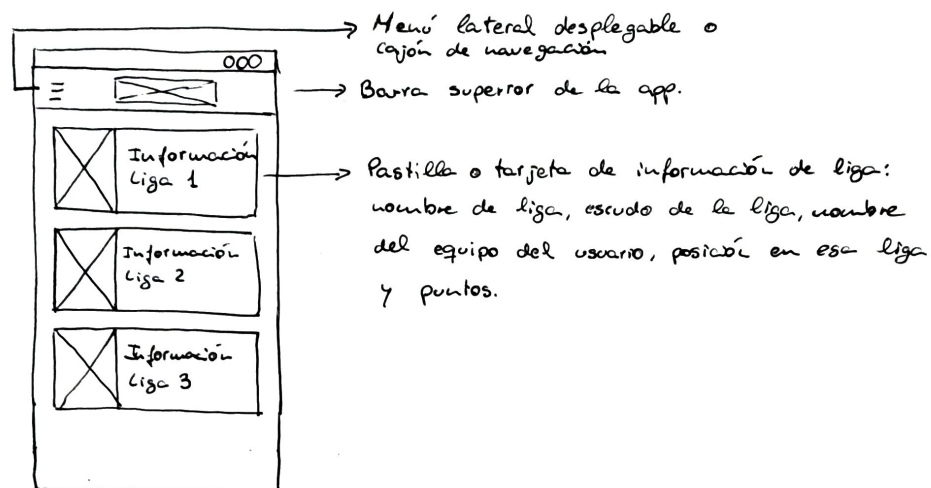 Menú lateral desplegable o
cajón de navegación
Barra superior de la app.
Información
Liga 1
Pastilla o tarjeta de información de liga:
nombre de liga, escudo de la liga, nombre
del equipo del usuario, posición en esa liga
y puntos.
Información
Liga 2
Información
Liga 3